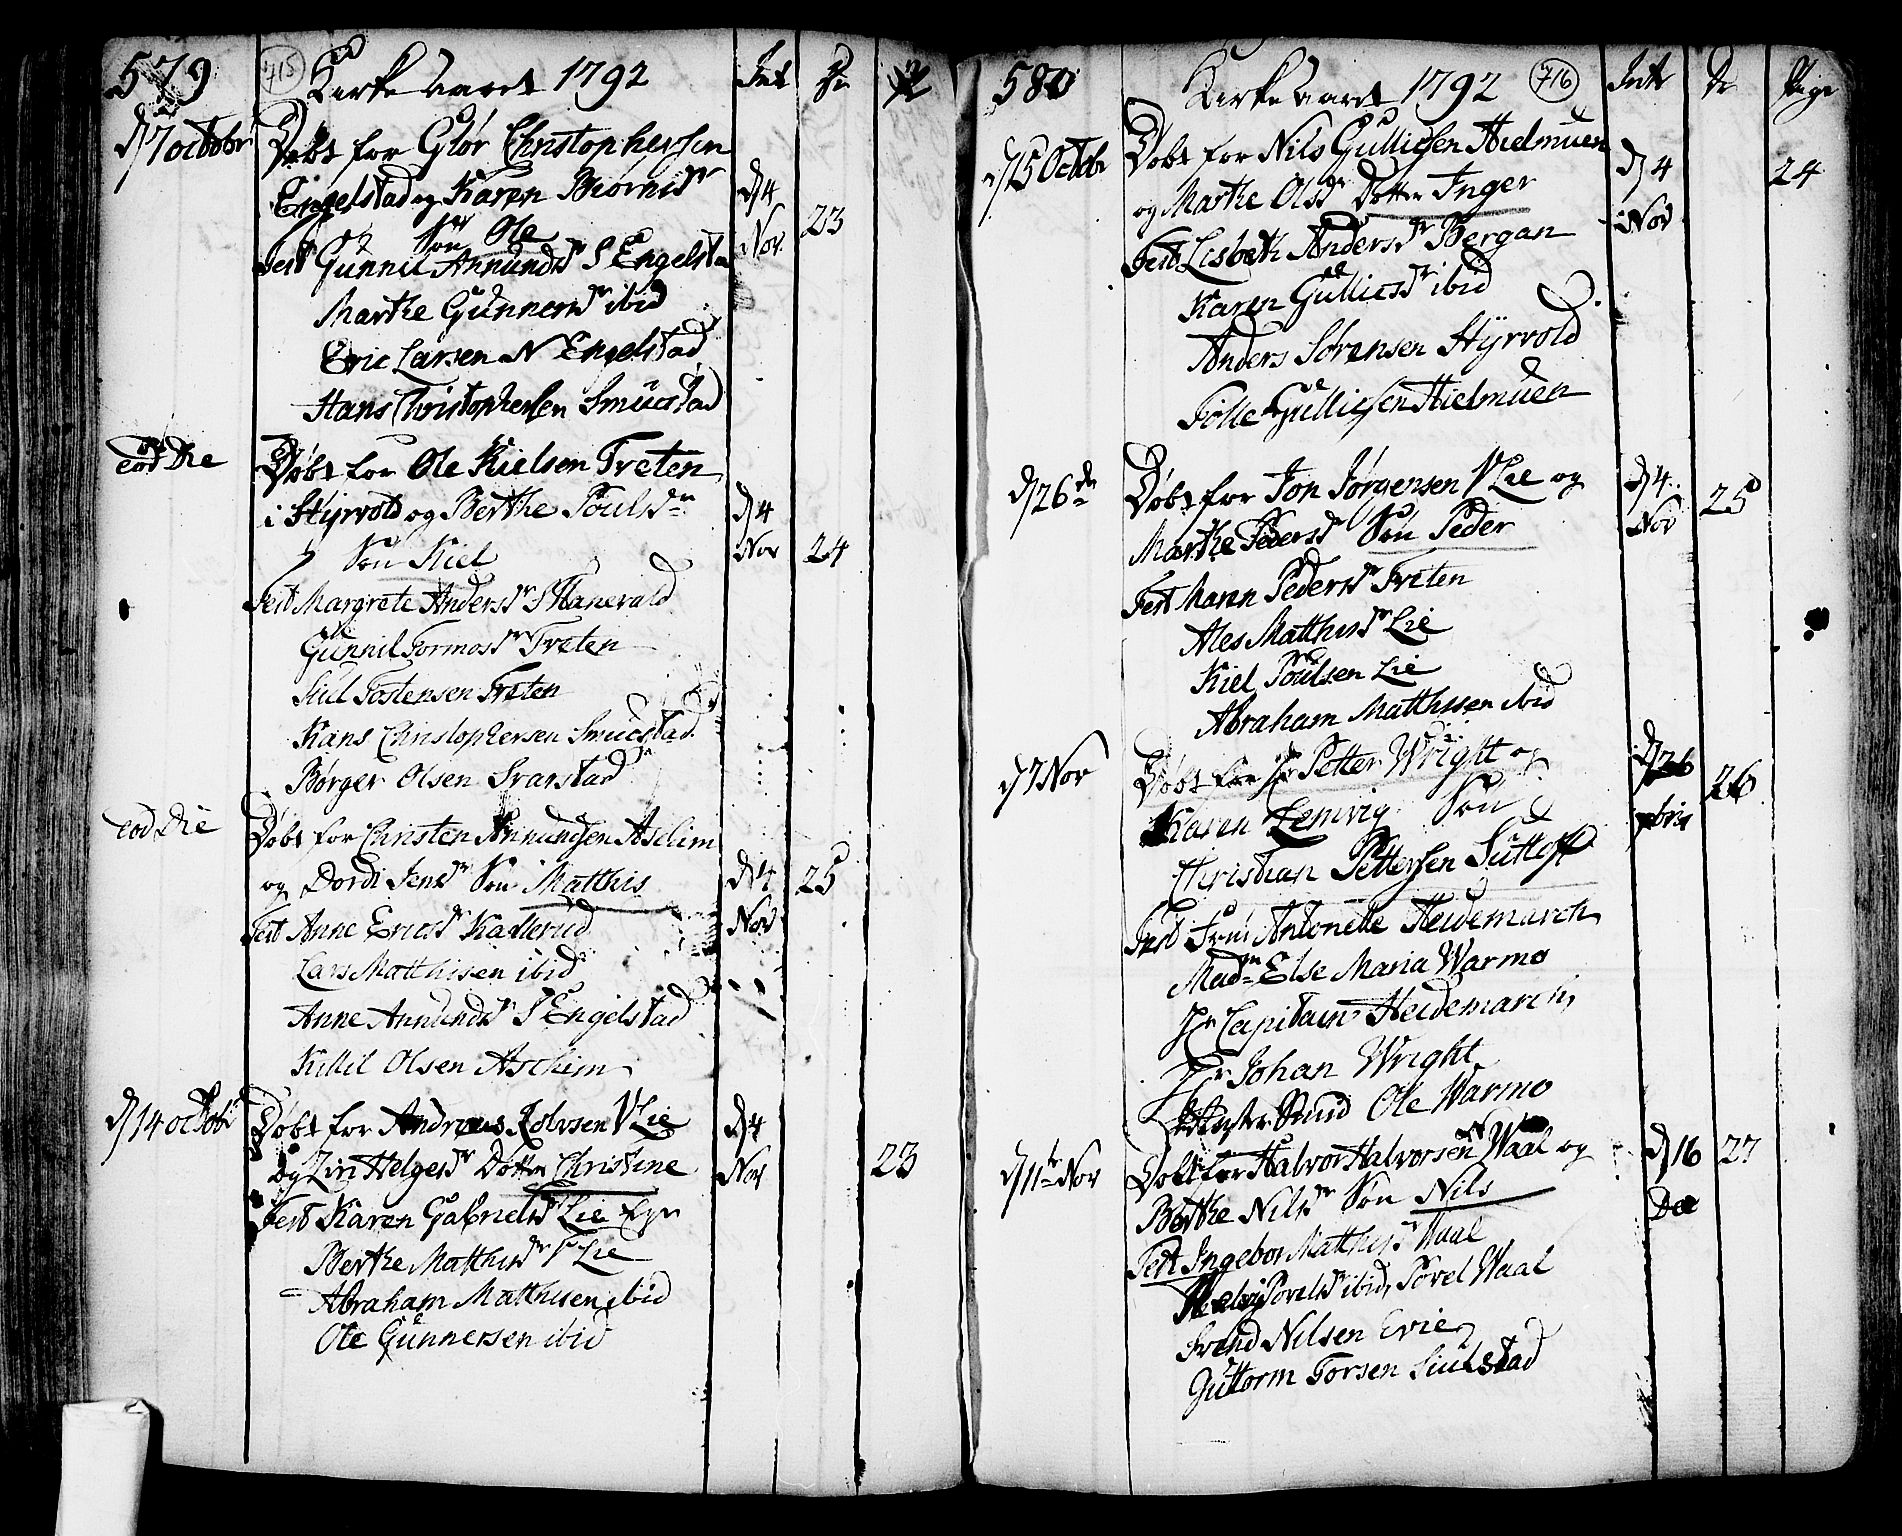 579 715 Kirke aaret 1792 Int
d 7 octobr Døbt for Glør Christophersen
Engelstad og Karen Biørnsdr d 4
Søn Ole Nov 23
Test Gunnil Annundsdr S Engelstad
Marthe Gunnersdr ibid
Eric Larsen N Engelstad
Hans Christophersen Smucstad
eod Die Døbt for Ole Kielsen Treten
i Styrvold og Berthe Poulsdr d 4
Søn Kiel Nov 24
Test Margrete Andersdr S Hanevald
Gunnil Tormosdr Treten
Siul Tostensen Treten
Hans Christophersen Smucstad
Børger Olsen Svarstad
eod Die Døbt for Christen Annundsen Aschim
og Dordi Jensdr Søn Matthis d 4 25
Test Anne Ericsdr Kadlerud Nov
Lars Matthisen ibid
Anne Annundsdr S Engelstad
Killil Olsen Aschim
d 14 octobr Døbt for Andreas Rolvsen V Lie d 4
og Ziri Helgesdr Dotter Christine Nov 23
Test Karen Gabrielsdr Lie
Berthe Matthisdr V Lie
Abraham Matthisen ibid
Ole Gunnersen ibid
580 Kirke aaret 1792 716 Int Pige
d 15 Octobr Døbt for Nils Gullicsen Hielmuen d 4 24
og Marthe Olsdr Dotter Inger Nov
Test Lisbeth Andersdr Bergan
Karen Gullicsdr ibid
Anders Sørensen Styrvold
Tolle Gullicsen Hielmuen
d 26 de Døbt for Jon Jørgensen V Lie og d 4 25
Marthe Pedersdr Søn Peder Nov
Test Maren Pedersdr Treten
Ales Matthisdr Lie
Kiel Poulsen Lie
Abraham Matthisen ibid
d 7 Nov Døbt for Hr Petter Wright og d 26 26
Karen Lemvig Søn
Christian Pettersen Suttoff
Test Fru Antonette Heidemarch
Madm Else Maria Warmo
Hr Capitain Heidemarch
Hr Johan Wright
Ole Warmo
d 11te Nov Døbt for Halvor Halvorsen Waal og d 16 27
Berthe Nilsdr Søn Nils Dec
Test Ingebor Matthisdr Waal
Povelsdr ibid, Povel Waal
Svend Nilsen Evie
Guttorm Torsen Siulstad